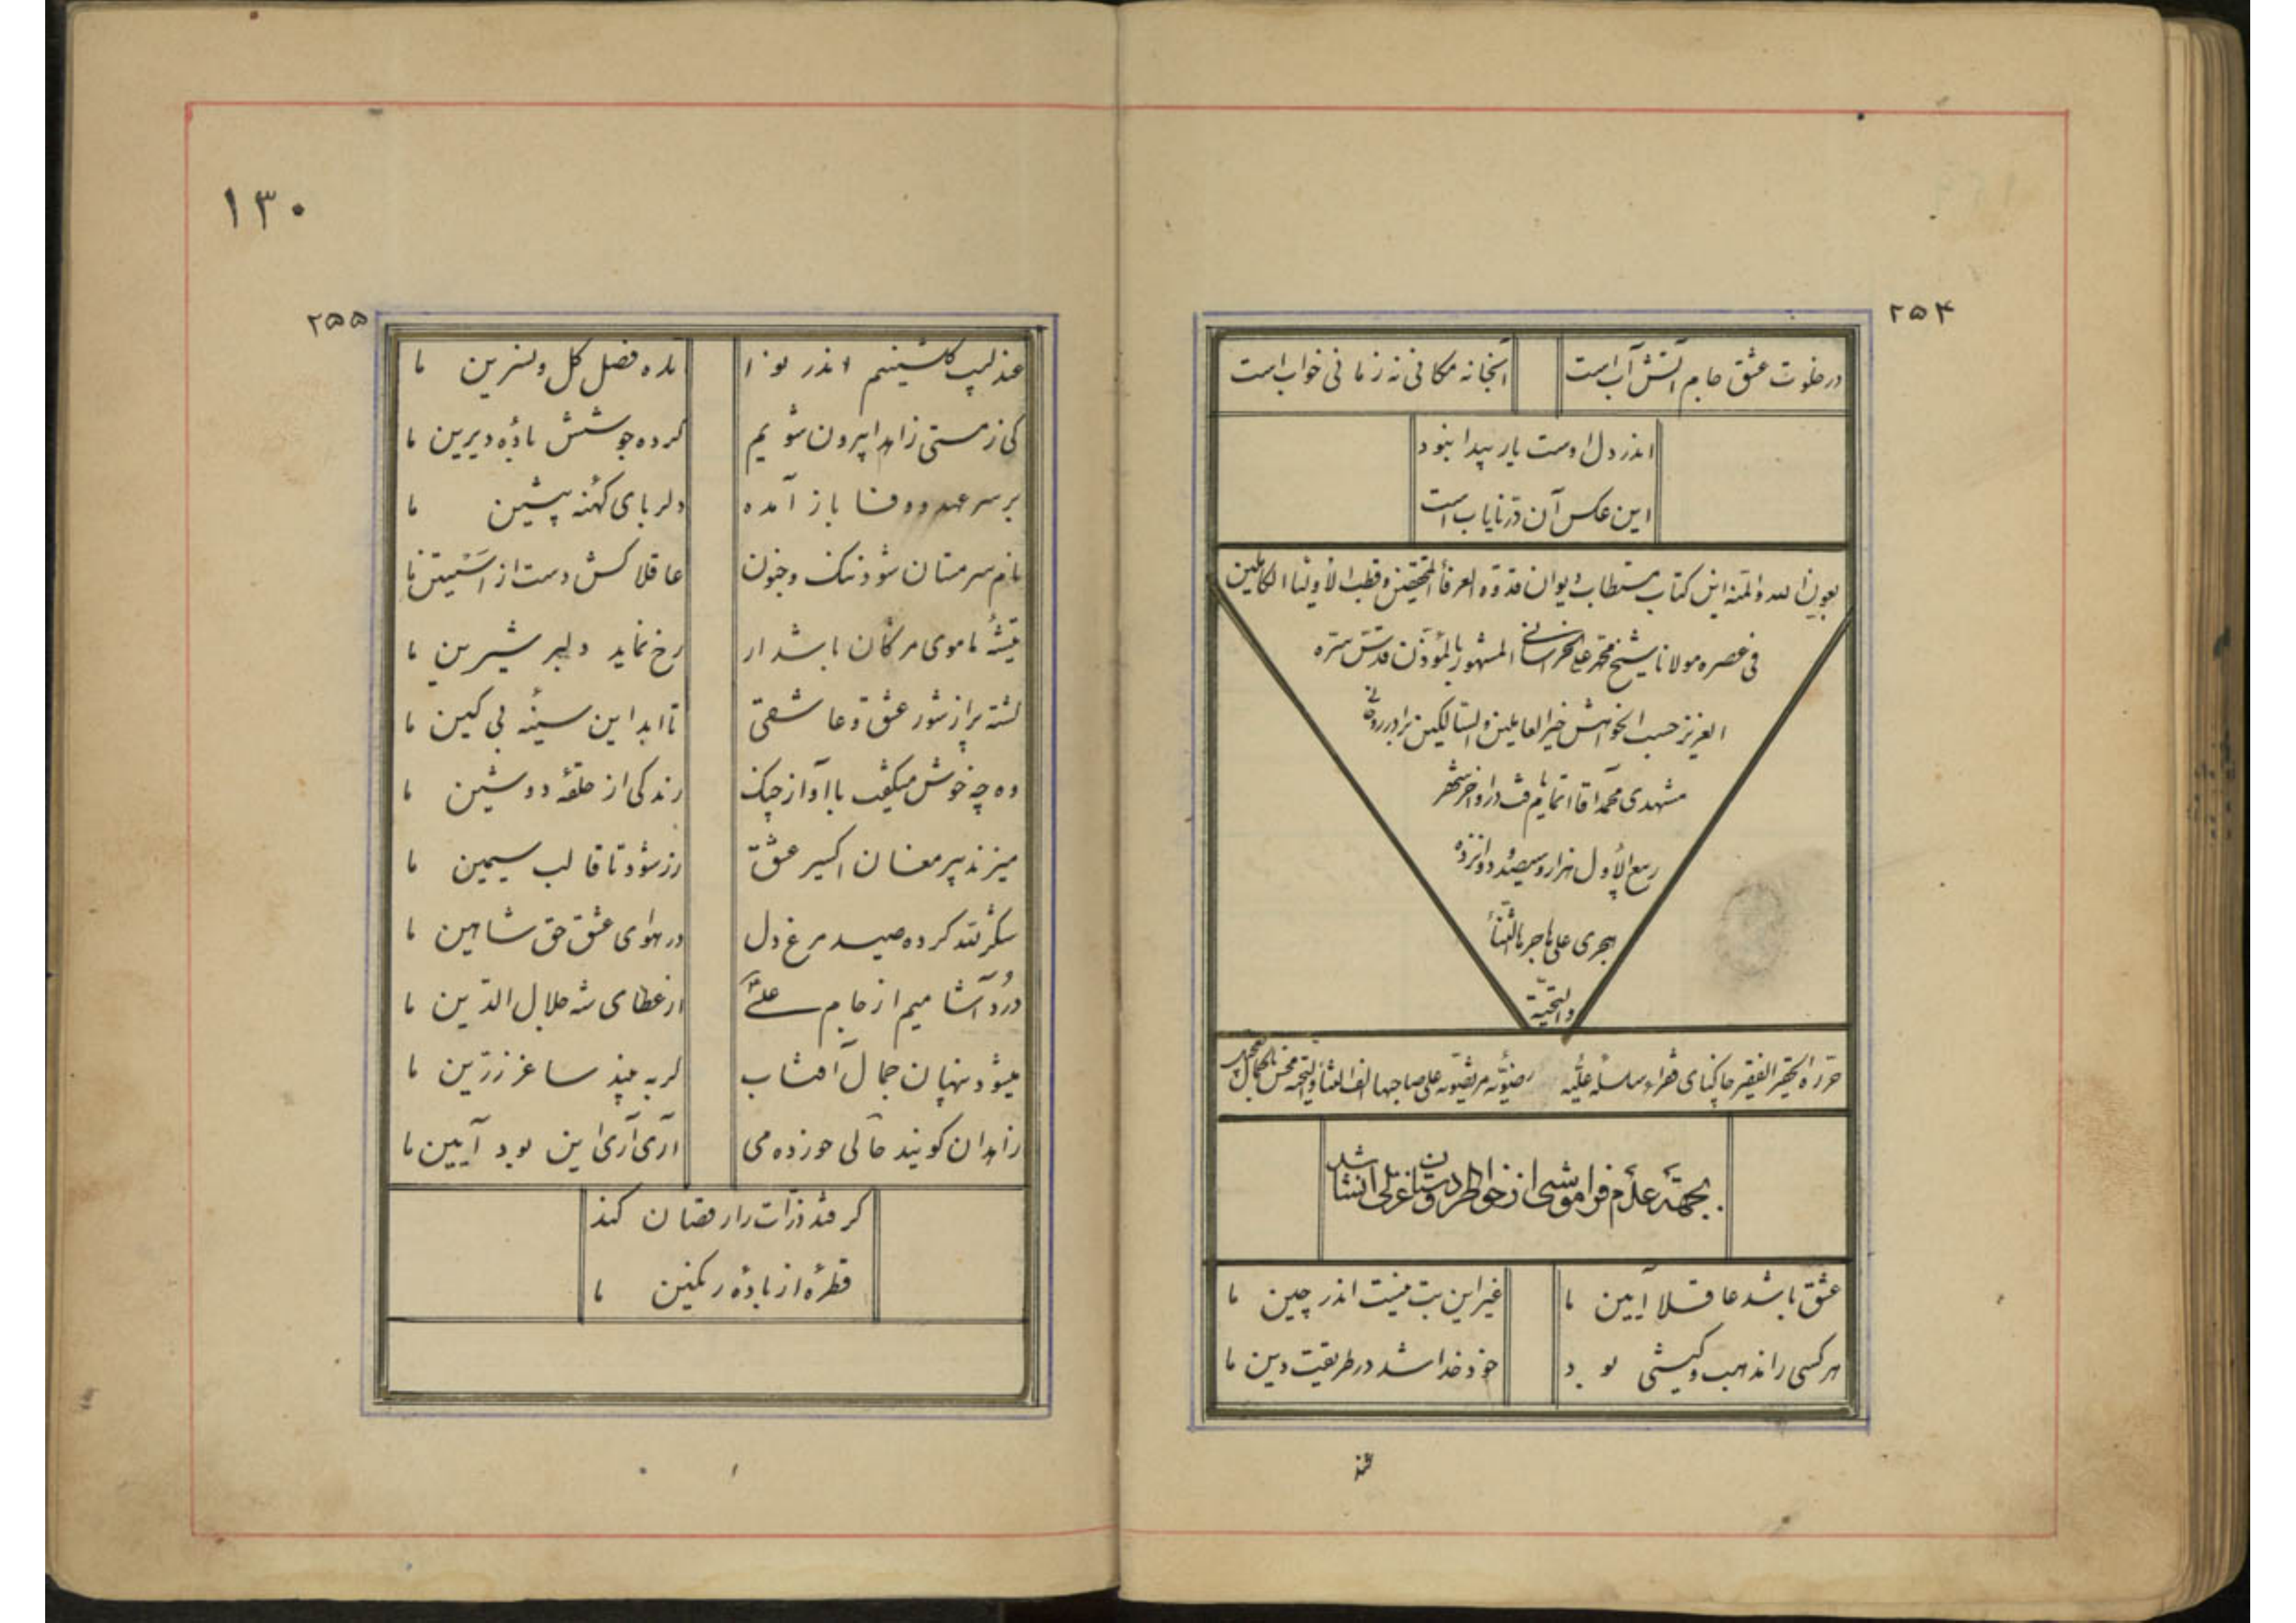 ۲۵۴
در خلوت عشق جام آتش آب است آنجا نه مکانی نه زمانی خواب است
اندر دل اوست یار پیدا بنود
این عکس آن در نایاب است
بعون الله والمنه این کتاب مستطاب دیوان قدوة العرفأ المحققین و قطب الأولیأ الکاملین
فی عصره مولانا شیخ محمد علی الخراسانی المشهور بالمؤذن قدس سره
العزیز حسب الخواهش خیر العاملین والسالکین برادر روحانی
مشهدی محمد آقا اتمام یافت در اواخر شهر
ربیع الأول هزار و سیصد و دوانزده
هجری علی هاجرها الثنأ
والتحیة
حرره الحقیر الفقیر خاکپای فقراء سلسله علیّه رضویّه مرتضویه علی صاحبها الف الثنأ والتحیة
بجهة عدم فراموشی از خواطر دوستان غزلی انشا شد
عشق باشد عاقلا آیین ما غیر این بت نیست اندر چین ما
هر کسی را مذهب و کیشی بود خود خدا شد در طریقت دین ما
عند
۱۳۰
۲۵۵
عندلیب گلشنیم اندر نوا آمده فصل گل و نسرین ما
کی ز مستی زاهدا بیرون شویم کرده جوشش بادهٔ دیرین ما
بر سر عهد و وفا باز آمده دلربای کهنه پیشین ما
نام سر مستان شود ننگ و جنون عاقلا کش دست از آستین ما
تیشهٔ ما موی مژگان باشد ار رخ نماید دلبر شیرین ما
گشته پر از شور عشق و عاشقی تا ابد این سینهٔ بی کین ما
وه چه خوش میگفت با آواز چنگ رندکی از حلقهٔ دوشین ما
میزند پیر مغان اکسیر عشق زر شود تا قالب سیمین ما
شکرلله کرده صید مرغ دل در هوای عشق حق شاهین ما
درد آشامیم از جام علی از عطای شه جلال الدّین ما
میشود پنهان جمال آفتاب گر به بیند ساغر زرّین ما
زاهدان گویند حالی خورده می آری آری این بود آیین ما
گر فتد ذرّات را رقصان کند
قطرهٔ از بادهٔ رنگین ما